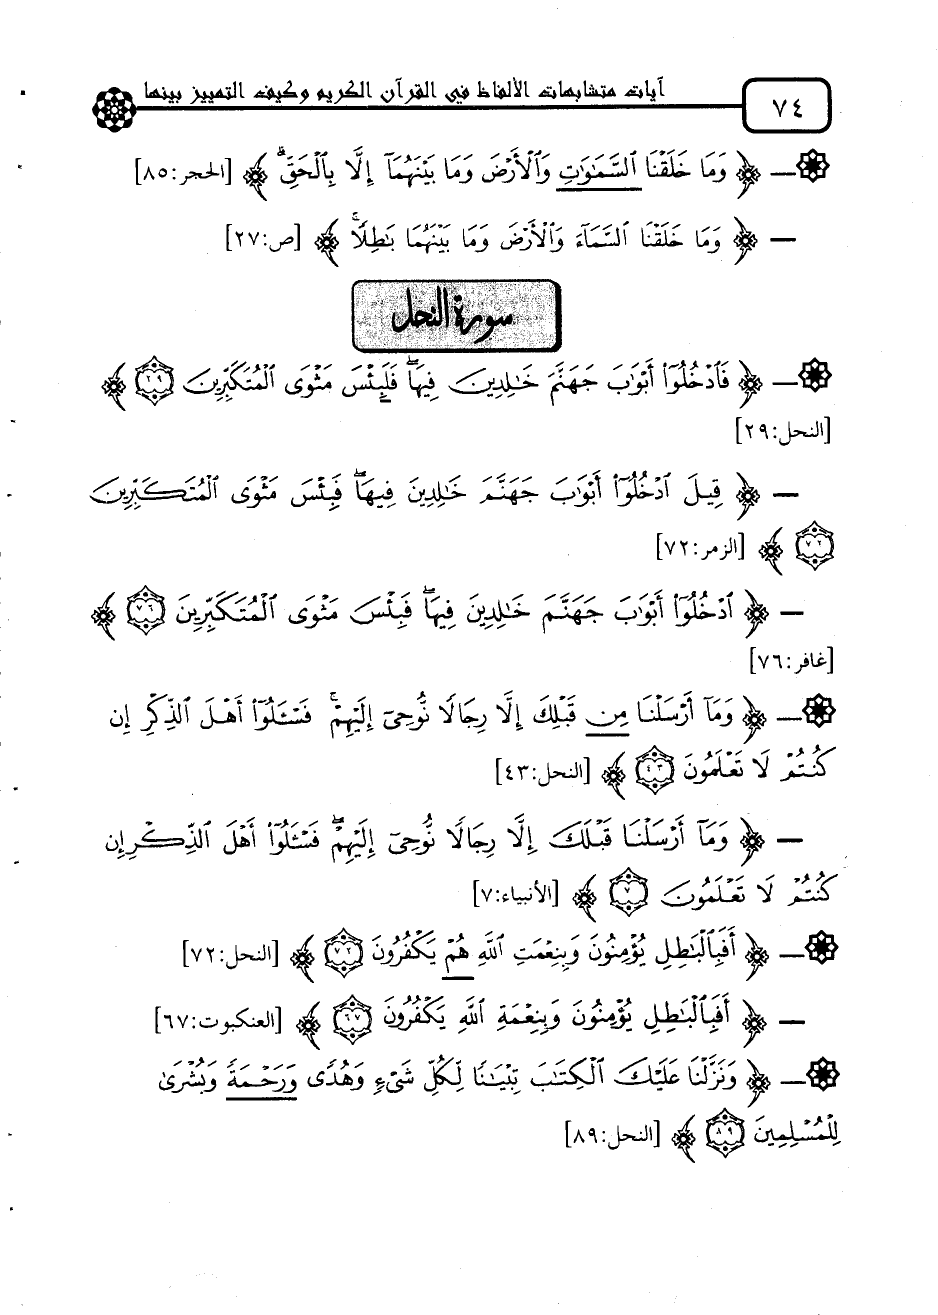 ٧٤ آيات متشابهات الألفاظ في القرآن الكريم وكيف التمييز بينها
— ﴿ وَمَا خَلَقْنَا السَّمَٰوَٰتِ وَالْأَرْضَ وَمَا بَيْنَهُمَآ إِلَّا بِالْحَقِّ ۗ ﴾ [الحجر:٨٥]
— ﴿ وَمَا خَلَقْنَا السَّمَآءَ وَالْأَرْضَ وَمَا بَيْنَهُمَا بَٰطِلًا ۚ ﴾ [ص:٢٧]
سورة النحل
— ﴿ فَادْخُلُوٓا۟ أَبْوَٰبَ جَهَنَّمَ خَٰلِدِينَ فِيهَا ۖ فَلَبِئْسَ مَثْوَى الْمُتَكَبِّرِينَ ٢٩ ﴾
[النحل:٢٩]
— ﴿ قِيلَ ادْخُلُوٓا۟ أَبْوَٰبَ جَهَنَّمَ خَٰلِدِينَ فِيهَا ۖ فَبِئْسَ مَثْوَى الْمُتَكَبِّرِينَ
٧٢ ﴾ [الزمر:٧٢]
— ﴿ ادْخُلُوٓا۟ أَبْوَٰبَ جَهَنَّمَ خَٰلِدِينَ فِيهَا ۖ فَبِئْسَ مَثْوَى الْمُتَكَبِّرِينَ ٧٦ ﴾
[غافر:٧٦]
— ﴿ وَمَآ أَرْسَلْنَا مِن قَبْلِكَ إِلَّا رِجَالًا نُّوحِىٓ إِلَيْهِمْ ۚ فَسْـَٔلُوٓا۟ أَهْلَ الذِّكْرِ إِن
كُنتُمْ لَا تَعْلَمُونَ ٤٣ ﴾ [النحل:٤٣]
— ﴿ وَمَآ أَرْسَلْنَا قَبْلَكَ إِلَّا رِجَالًا نُّوحِىٓ إِلَيْهِمْ ۖ فَسْـَٔلُوٓا۟ أَهْلَ الذِّكْرِ إِن
كُنتُمْ لَا تَعْلَمُونَ ٧ ﴾ [الأنبياء:٧]
— ﴿ أَفَبِالْبَٰطِلِ يُؤْمِنُونَ وَبِنِعْمَتِ اللَّهِ هُمْ يَكْفُرُونَ ٧٢ ﴾ [النحل:٧٢]
— ﴿ أَفَبِالْبَٰطِلِ يُؤْمِنُونَ وَبِنِعْمَةِ اللَّهِ يَكْفُرُونَ ٦٧ ﴾ [العنكبوت:٦٧]
— ﴿ وَنَزَّلْنَا عَلَيْكَ الْكِتَٰبَ تِبْيَٰنًا لِّكُلِّ شَىْءٍ وَهُدًى وَرَحْمَةً وَبُشْرَىٰ
لِلْمُسْلِمِينَ ٨٩ ﴾ [النحل:٨٩]